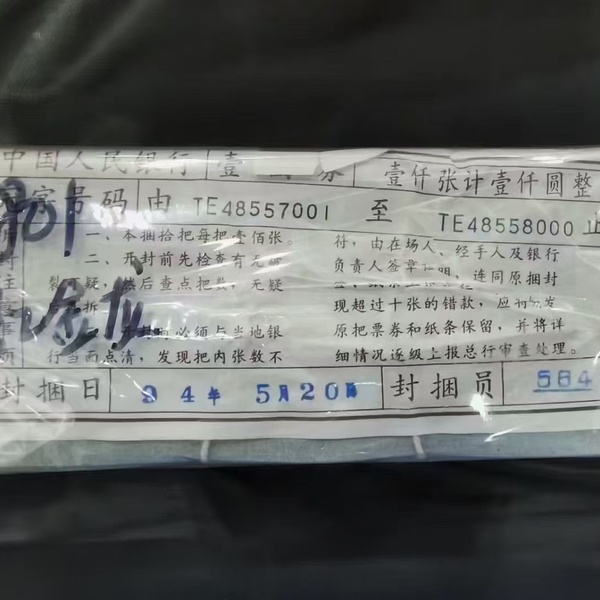 中国人民银行 壹 券 壹仟张计壹仟圆整
901
字号码 由 TE48557001 至 TE48558000 止
一、本捆拾把每把壹佰张。
二、开封前先检查有无
疑,然后查点把数,无疑
拆
必须与当地银
行当面点清,发现把内张数不
符,由在场人、经手人及银行
负责人签章 ,连同原捆封
现超过十张的错款,应
原把票券和纸条保留,并将详
细情况逐级上报总行审查处理。
封捆日 94年 5月20 封捆员 584